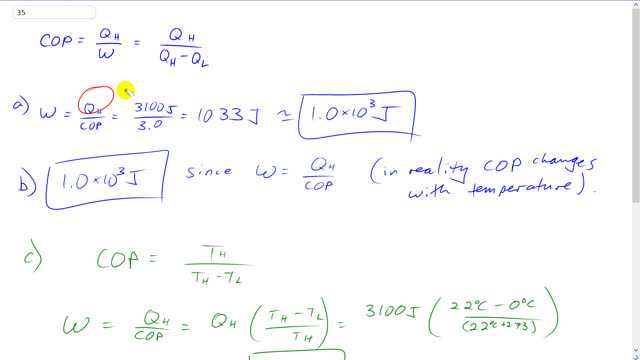 35
COP = Q_H / W = Q_H / (Q_H - Q_L)
a) W = Q_H / COP = 3100J / 3.0 = 1033 J ≃ 1.0×10³ J
b) 1.0×10³ J since W = Q_H / COP (in reality COP changes with temperature).
c) COP = T_H / (T_H - T_L)
W = Q_H / COP = Q_H ( (T_H - T_L) / T_H ) = 3100J ( (22°C - 0°C) / (22°C+273) )